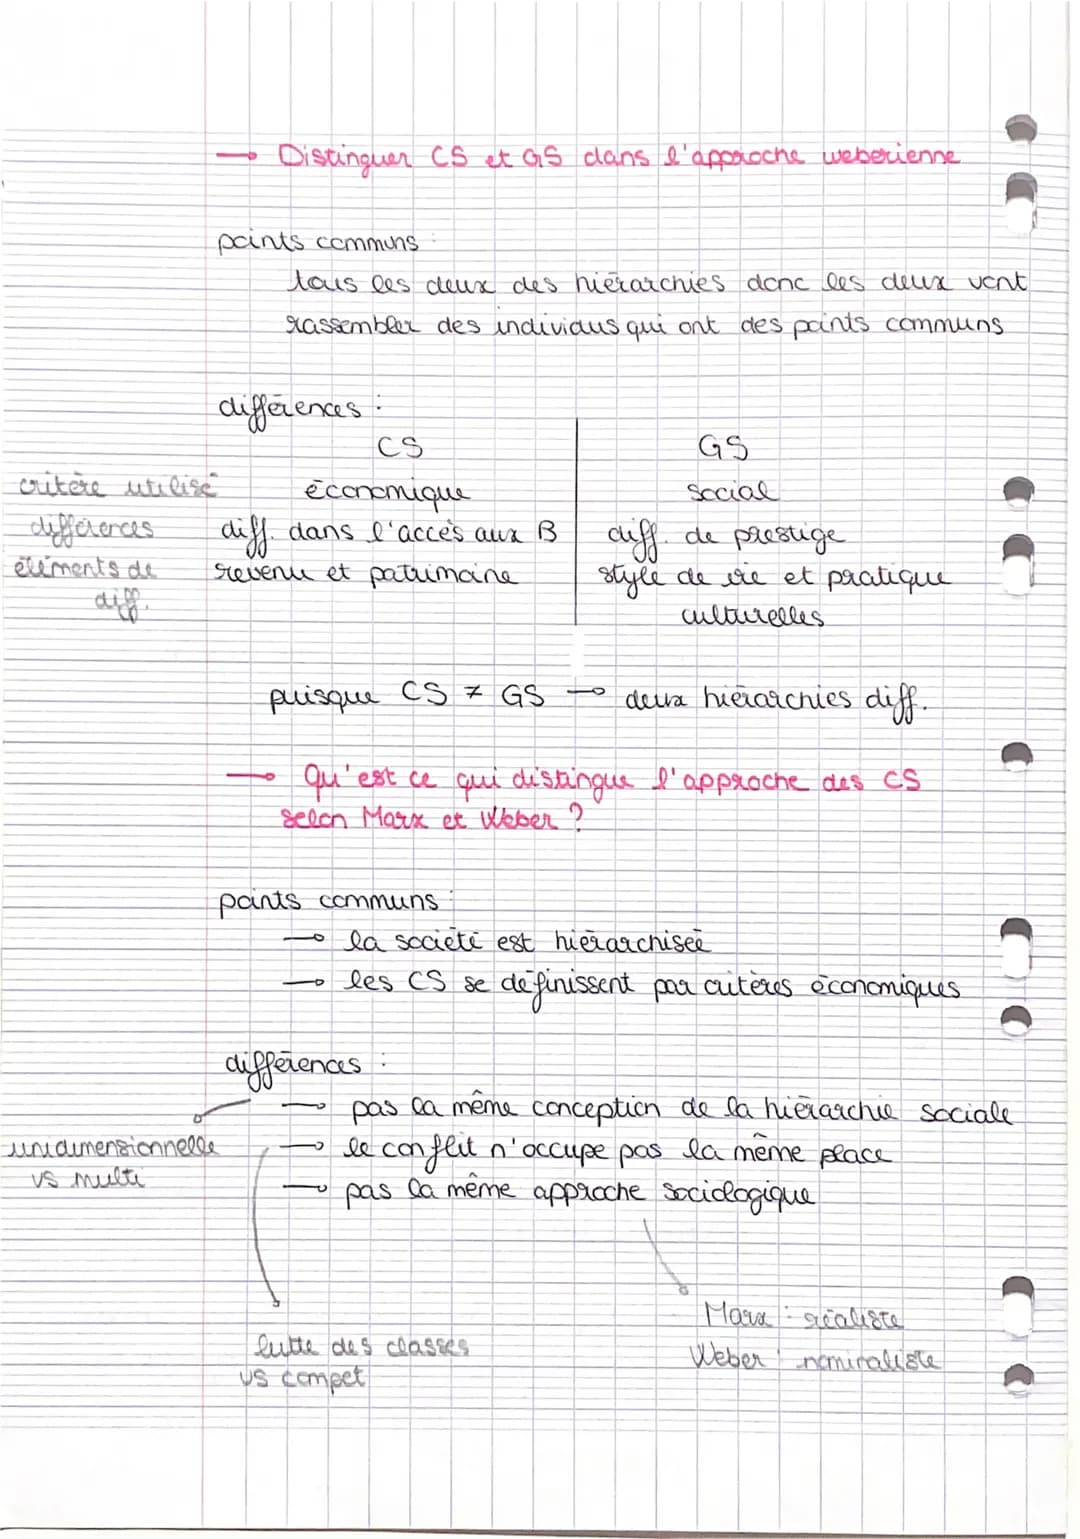 → Distinguer CS et GS dans l'approche weberienne
points communs :
tous les deux des hiérarchies donc les deux vont
rassembler des individus qui ont des points communs
différences :
CS GS
critère utilisé économique social
différences diff. dans l'accès aux B diff. de prestige
éléments de diff. revenu et patrimoine style de vie et pratique
culturelles
puisque CS ≠ GS → deux hiérarchies diff.
→ Qu'est ce qui distingue l'approche des CS
selon Marx et Weber ?
points communs :
→ la société est hiérarchisée
→ les CS se définissent par critères économiques
différences :
→ pas la même conception de la hiérarchie sociale
unidimensionnelle → le conflit n'occupe pas la même place
vs multi → pas la même approche sociologique
Marx : réaliste
lutte des classes Weber : nominaliste
vs compet